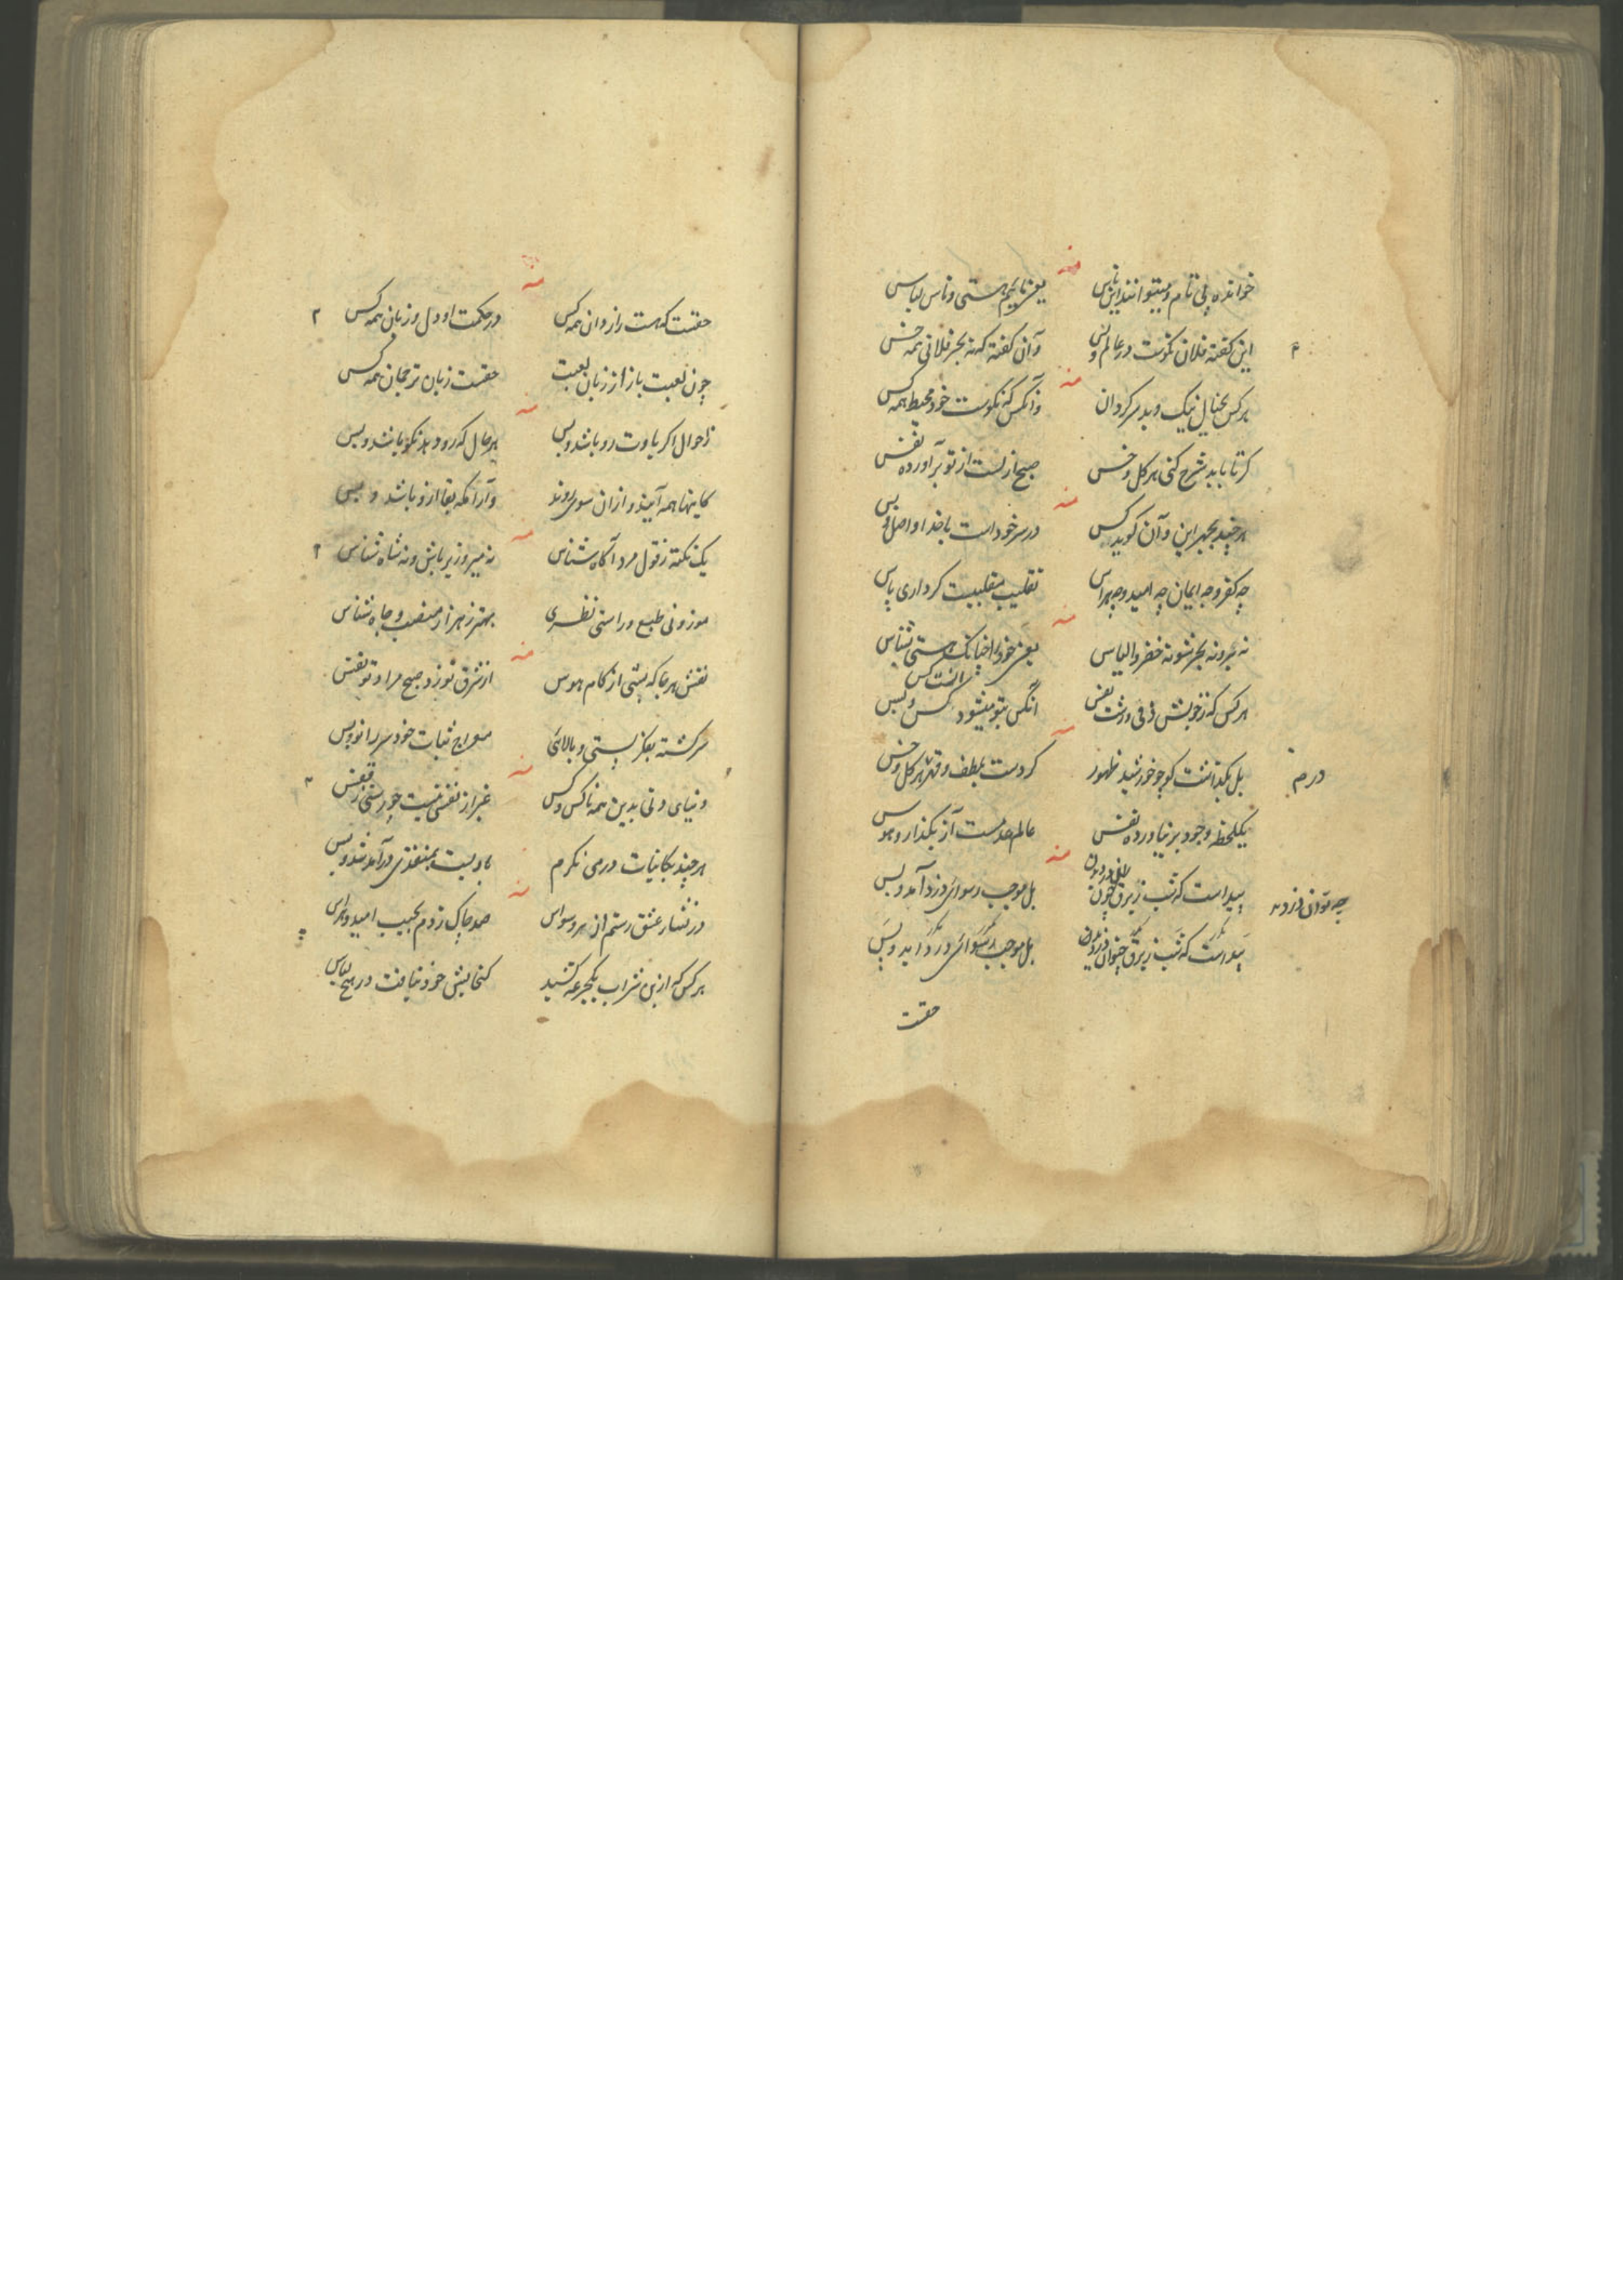 منه
خوانده پی نام و میتوانند این ناس یعنی نایم هستی و ناس لباس
این گفته فلان نکوست در عالم و بس وآن گفته که نه بجز فلانی همه خس
منه
هرکس بخیال نیک و بد سرکردان وآنکس که نکوست خود محیط همه کس
کرتا باید شرح کنی هر کل و خس صبح ازلست از تو برآورده نفس
منه
هرچند بجهر این و آن کوید کس در سر خود است با خدا واصل و بس
چه کفر و چه ایمان چه امید و چه هراس تقلیب مقلبیت کرداری پاس
منه
نه بر و نه بحر شو نه خضر و الیاس یعنی خود را چنانک هستی بشناس
هرکس که ز خویش نفس آنکس بتو میشود کس و بس
منه
بل بگذاشت کو چو خورشید ظهور کردست بلطف و قهر هر کل و خس
درم
یکلحظه وجود بر نیاورده نفس عالم عدمست آز بگذار و هوس
منه
پیداست که شب ز برق چون بل موجب رسوائی دزد آمد و بس
چه توان دزدید
پیداست که شب ز برق بل موجب رسوائی دزد آمد و بس
حقست
منه
حقست که هست رازدان همه کس در حکمت او دل و زبان همه کس
چون لعبت باز از زبان لعبت حقست زبان ترجمان همه کس
منه
ز احوال اگر با وت رو باشد و بس هر حال که رو دهد نکو باشد و بس
کاینها همه آیند و ازان سوی روند وآرامکه بقا ازو باشد و بس
منه
یک نکته ز قول مرد آکاه شناس نه میر و زیر باش و نه شاه شناس
موزونی طبع و راستی نظری بهتر ز هزار منصب و جاه شناس
منه
نقش هر جا که بستی از کام هوس از شرق تو زد صبح مراد تو نفس
سرکشته بفکر پستی و بالائی معراج ثبات خود سر زانو و بس
منه
دنیای دنی بدین همه ناکس و کس غیر از نفسی نیست چو رستی ز قفس
هرچند بکاینات درمی نکرم بادیست بمنفذی درآمد شد و بس
منه
در فشار عشق رستم از هر وسواس صد چاک زدم بجیب امید و هراس
هرکس که ازین شراب یکجرعه کشید کنجایش خود نیافت در هیچ لباس